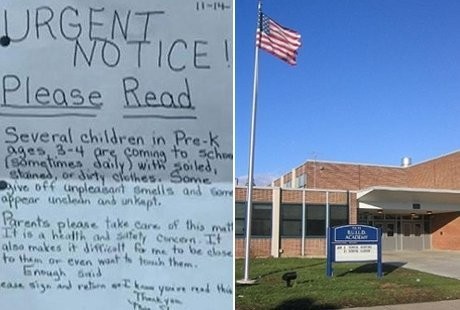 11-14-
URGENT
NOTICE!
Please Read
Several children in Pre-K
ages 3-4 are coming to schoo
(sometimes daily) with soiled,
stained, or dirty clothes. Some
give off unpleasant smells and some
appear unclean and unkept.
Parents please take care of this matt
It is a health and safety concern. It
also makes it difficult for me to be close
to them or even want to touch them.
Enough said
ease sign and return so I know you've read this
Thank you
B.U.I.L.D.
ACADEMY